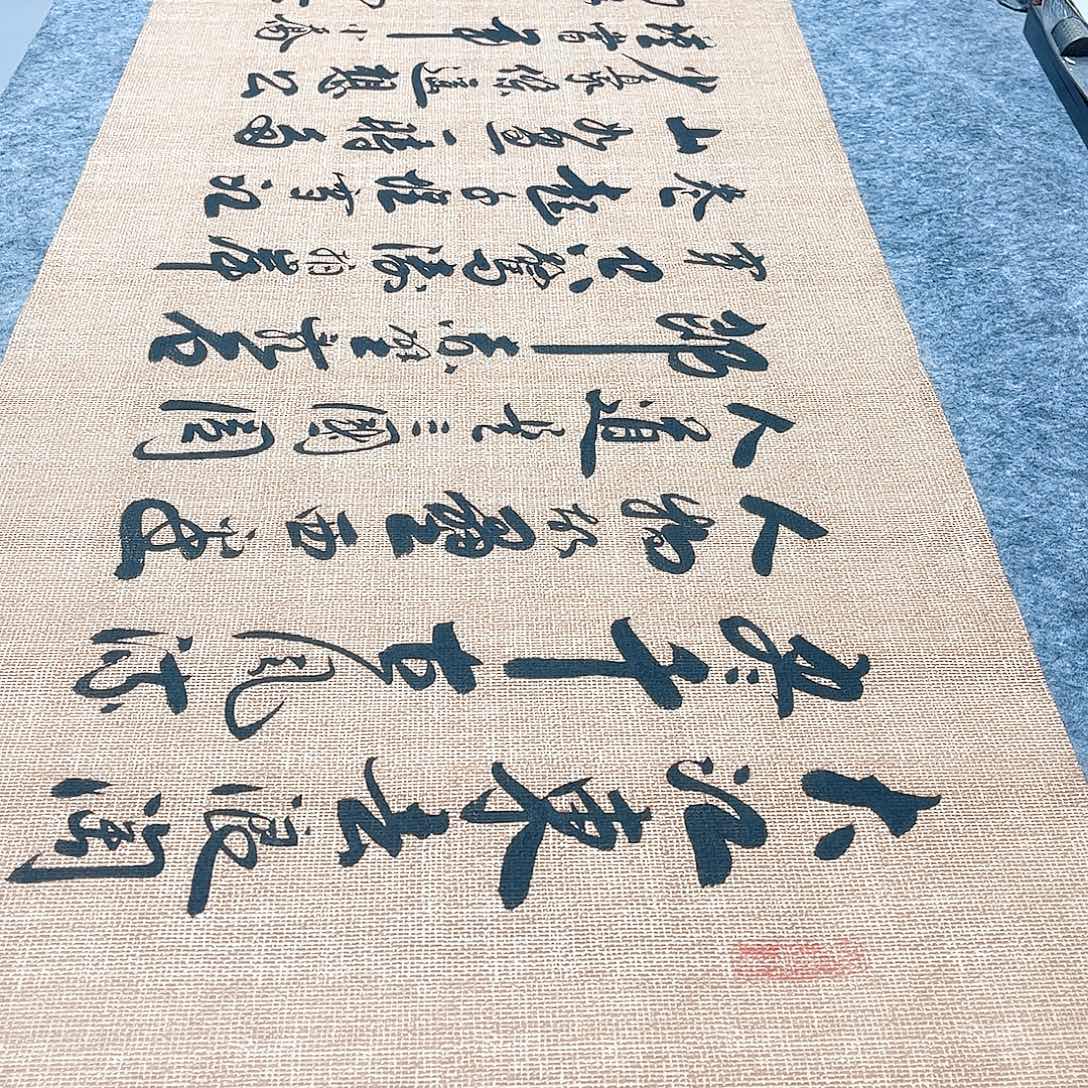 大江東去浪淘
盡千古風流
人物故壘西邊
人道是三國周
郎赤壁亂石
穿空驚濤拍岸
卷起千堆雪江
山如畫一時多
少豪傑遙想公
瑾當年小喬